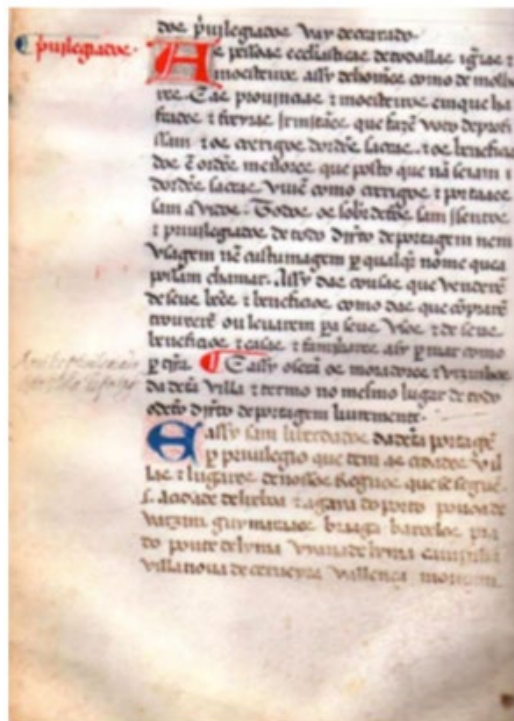 dos p̃uilegiados vay decrarado.
p̃uilegiados.
As pessoas ecclesiasticas de todallas igr̃ias ⁊
moesteiros assy de homẽes como de molhe
res. E as prouinçias ⁊ moesteiros em que ha
frades ⁊ freyras
que fazẽ voto de profi
ssam ⁊ os clerigos dordẽs sacras. ⁊ os benefiçia
dos ẽ ordẽs menores que posto que nã seiam
dordẽs sacras viuẽ como clerigos ⁊ por taaes
sam auidos. Todos os sobr̃ditos sam isentos
⁊ priuilegiados de todo dir̃to de portagem nem
vsagem nẽ custumagem per qualq̃r nome que a
posam chamar. Assy das cousas que venderẽ
de seus bẽes ⁊ beneficios como das que cõprarẽ
trouuerẽ ou leuarem pera seus vsos ⁊ de seus
beneficios ⁊ casas ⁊ familiares asy per mar como
per terra. E assy o seram os moradores ⁊ vizinhos
da dita villa ⁊ termo no mesmo lugar de todo
o dito dir̃to de portagem liuremente.
E assy sam liberdados da dita portagẽ
per priuilegio que tem as cidades vil
las ⁊ lugares de nossos Regnos que se seguẽ.
s. A cidade de lixboa ⁊ a gaya do porto pouoa de
varzim guymaraaes braaga barcelos pra
do ponte de lyma viana de lyma caminha
villa noua de cerueyra vallença monçam.